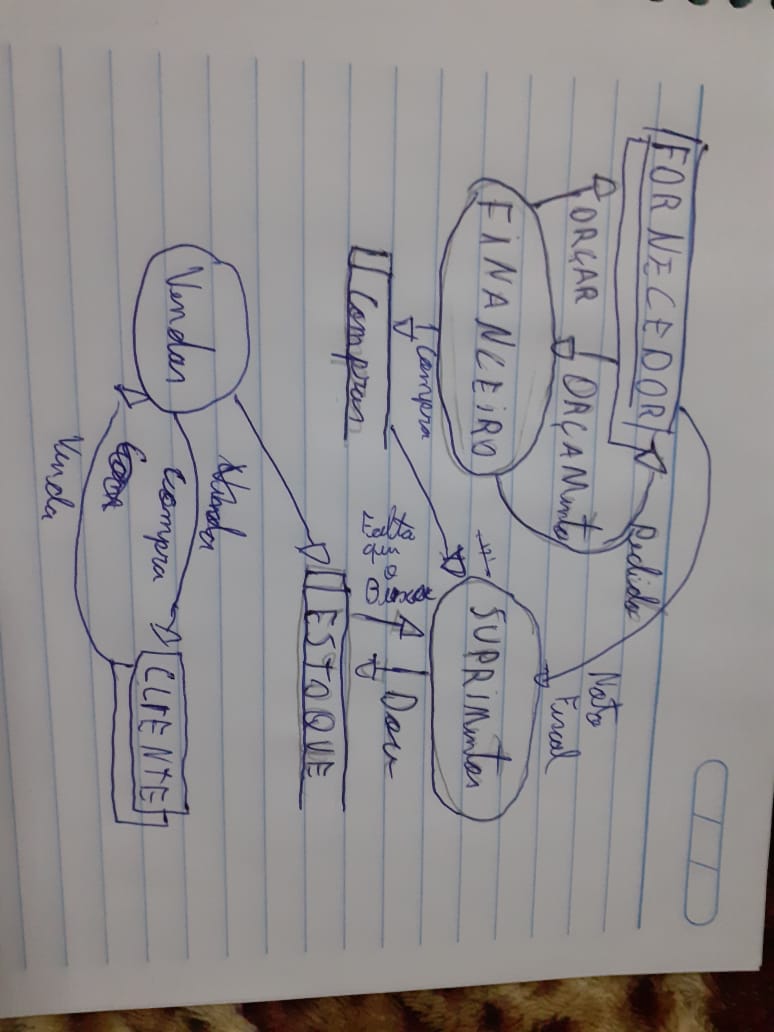 FORNECEDOR
Pedido
ORÇAR
ORÇAMento
Nota
Fiscal
FiNANCEiRO
SUPRIMentos
Compra
Falta
que
o
Dou
Compras
ESTOQUE
Venda
Vendas
Compra
CLIENTE
Venda